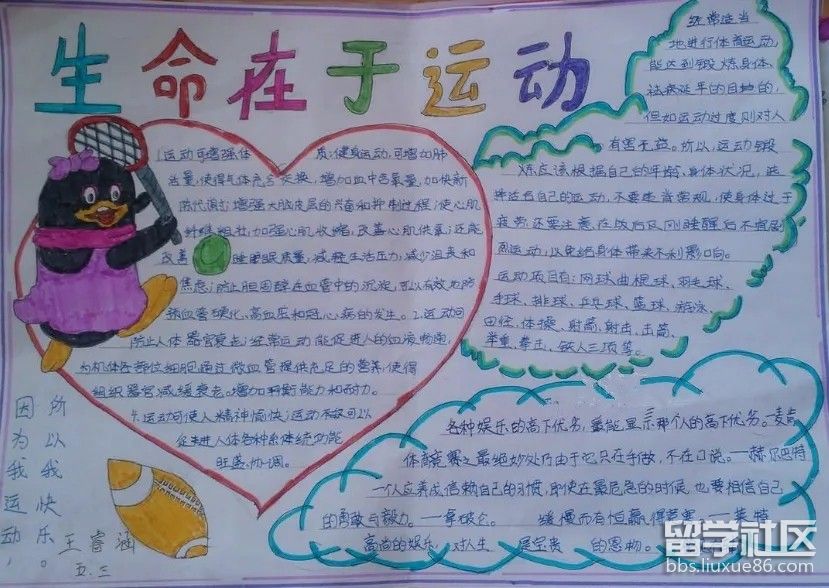 生命在于运动
1.运动可增强体 质:健身运动,可增加肺
活量,使得气体充分交换,增加血中含氧量,加快新
陈代谢;增强大脑皮层的兴奋和抑制过程;使心肌
纤维粗壮,加强心肌收缩,改善心肌供氧;还能
改善 睡眠质量,减轻生活压力,减少沮丧和
焦虑;防止胆固醇在血管中的沉淀,可以有效地防
预血管硬化、高血压和冠心病的发生。2.运动可
防止人体器官衰老;经常运动能促进人的血液畅通,
为机体各部位细胞通过微血管提供充足的营养,使得
组织器官减缓衰老。增加判断能力和耐力。
运动可使人精神愉快;运动不仅可以
促进人体各种系体统功能
旺盛、协调。
经常适当
地进行体育运动,
能达到锻炼身体、
祛病延年的目地的,
但如运动过度则对人
有害无益。所以,运动锻
炼应该根据自己的年龄、身体状况,选
择适合自己的运动,不要违背常规,使身体过于
疲劳;还要注意在饭后及刚睡醒后不宜剧
烈运动,以免给身体带来不利影响。
运动项目有:网球、曲棍球、羽毛球、
手球、排球、乒乓球、篮球、游泳、
田径、体操、射箭、射击、击剑、
举重、拳击、铁人三项等。
各种娱乐的高下优劣,最能显示那个人的高下优劣。—麦肯
体育竞赛之最绝妙处乃由于它只在手做,不在口说。—赫尔巴特
一个人应养成信赖自己的习惯,即使在最危急的时候,也要相信自己
的勇敢与毅力。—拿破仑。 缓慢而有恒赢得竞赛。—莱特
高尚的娱乐,对人生 是宝贵 的恩物。
因为我运动,
所以我快乐。
王睿涵
五.三
留学社区
bbs.liuxue86.com